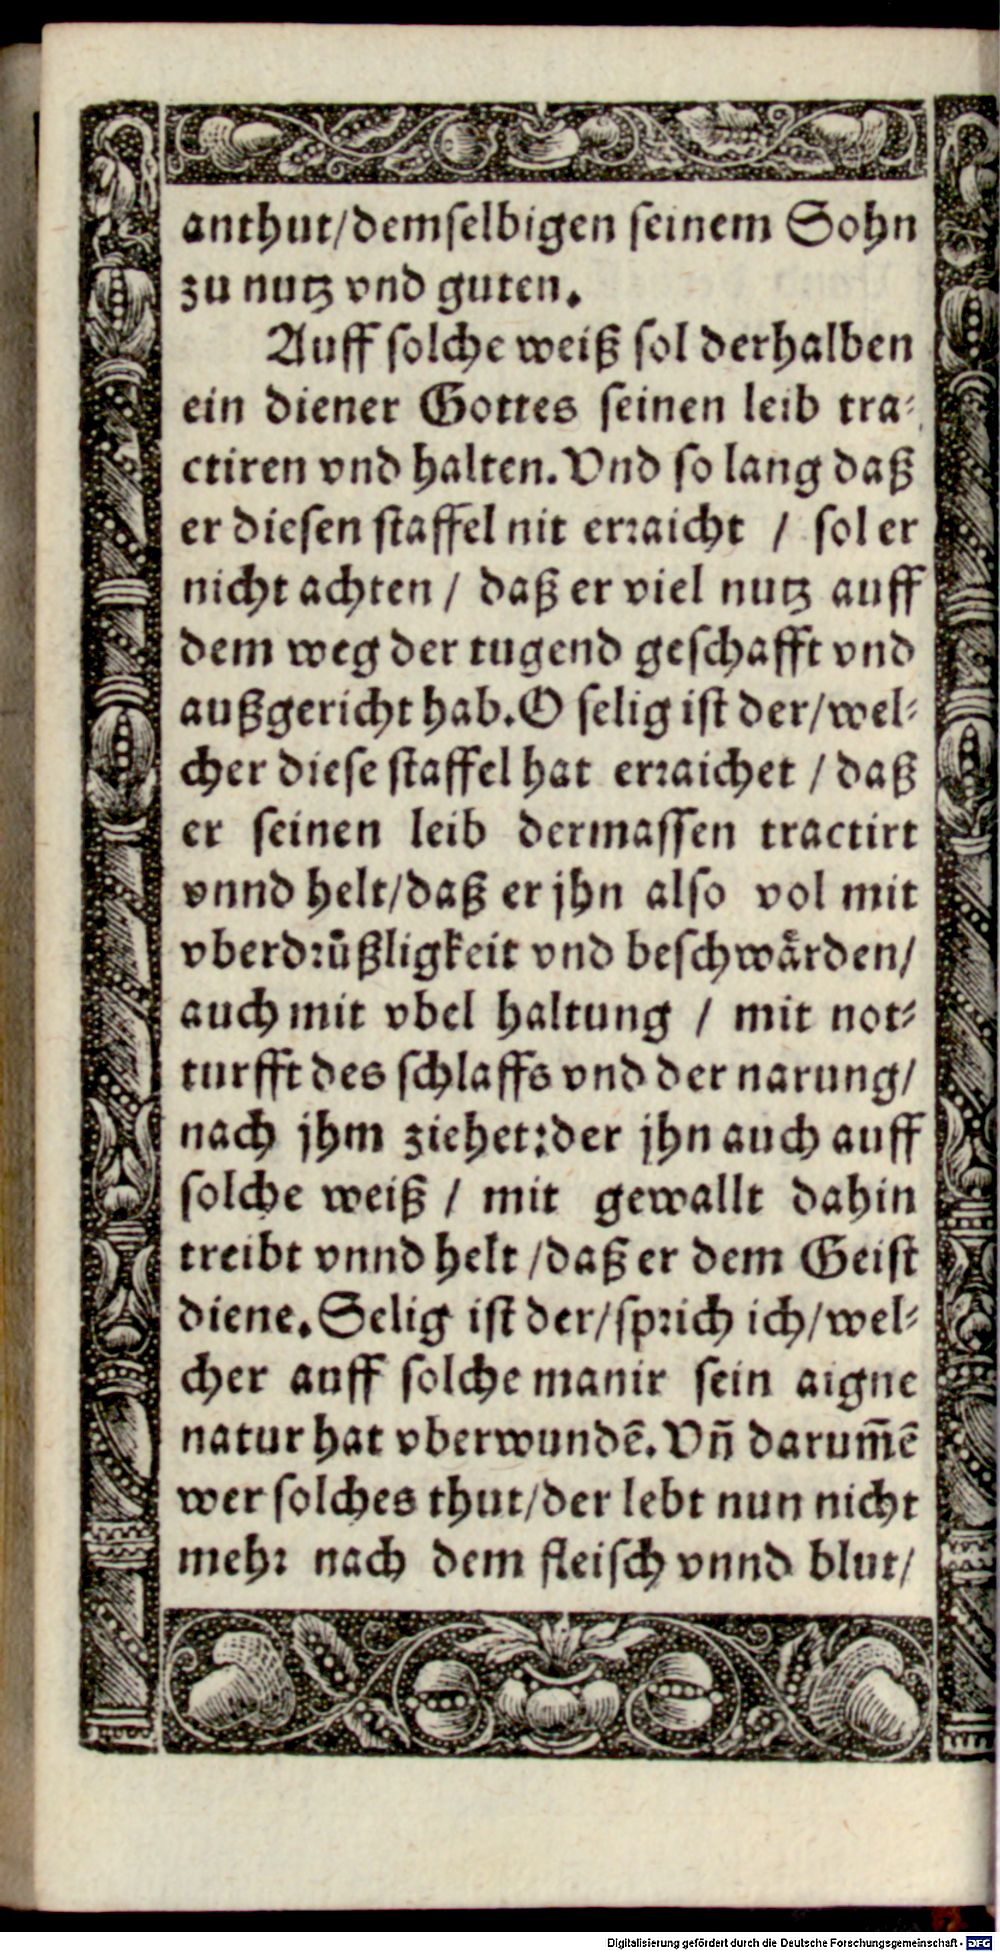 anthut/demselbigen seinem Sohn
zu nutz vnd guten.
Auff solche weiß sol derhalben
ein diener Gottes seinen leib tra⸗
ctiren vnd halten. Vnd so lang daß
er diesen staffel nit erraicht / sol er
nicht achten / daß er viel nutz auff
dem weg der tugend geschafft vnd
außgericht hab. O selig ist der/wel⸗
cher diese staffel hat erraichet / daß
er seinen leib dermassen tractirt
vnnd helt/daß er jhn also vol mit
vberdrůßligkeit vnd beschwaͤrden/
auch mit vbel haltung / mit not⸗
turfft des schlaffs vnd der narung/
nach jhm ziehet:der jhn auch auff
solche weiß / mit gewallt dahin
treibt vnnd helt /daß er dem Geist
diene. Selig ist der/sprich ich/wel⸗
cher auff solche manir sein aigne
natur hat vberwundē. Vñ darum̄ē
wer solches thut/der lebt nun nicht
mehr nach dem fleisch vnnd blut/
Digitalisierung gefördert durch die Deutsche Forschungsgemeinschaft - DFG